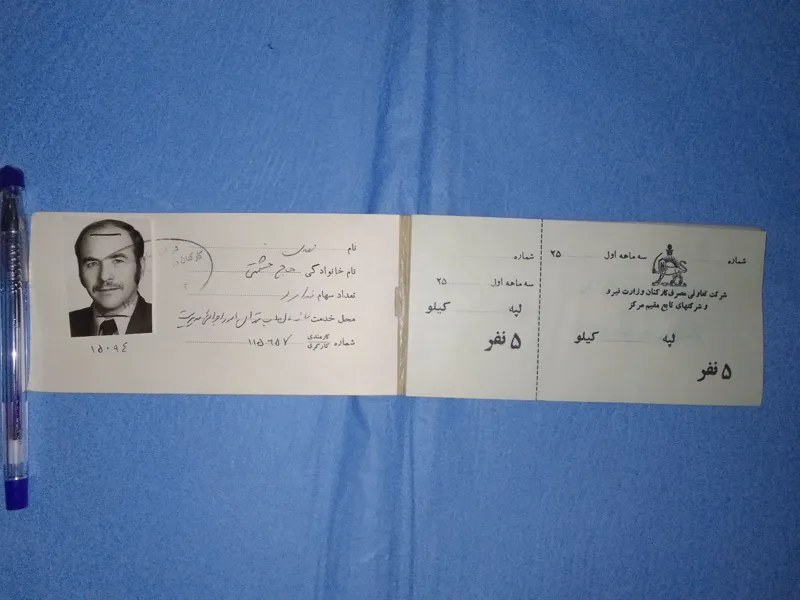 نام
نام خانوادگی حاج حشمتی
تعداد سهام ندارد
محل خدمت
شماره کارمندی کارگری ۱۱۵۶۵۷
۱۵۰۹۴
شماره
سه ماهه اول ۲۵
لپه کیلو
۵ نفر
شماره سه ماهه اول ۲۵
شرکت تعاونی مصرف کارکنان وزارت نیرو
و شرکتهای تابع مقیم مرکز
لپه کیلو
۵ نفر